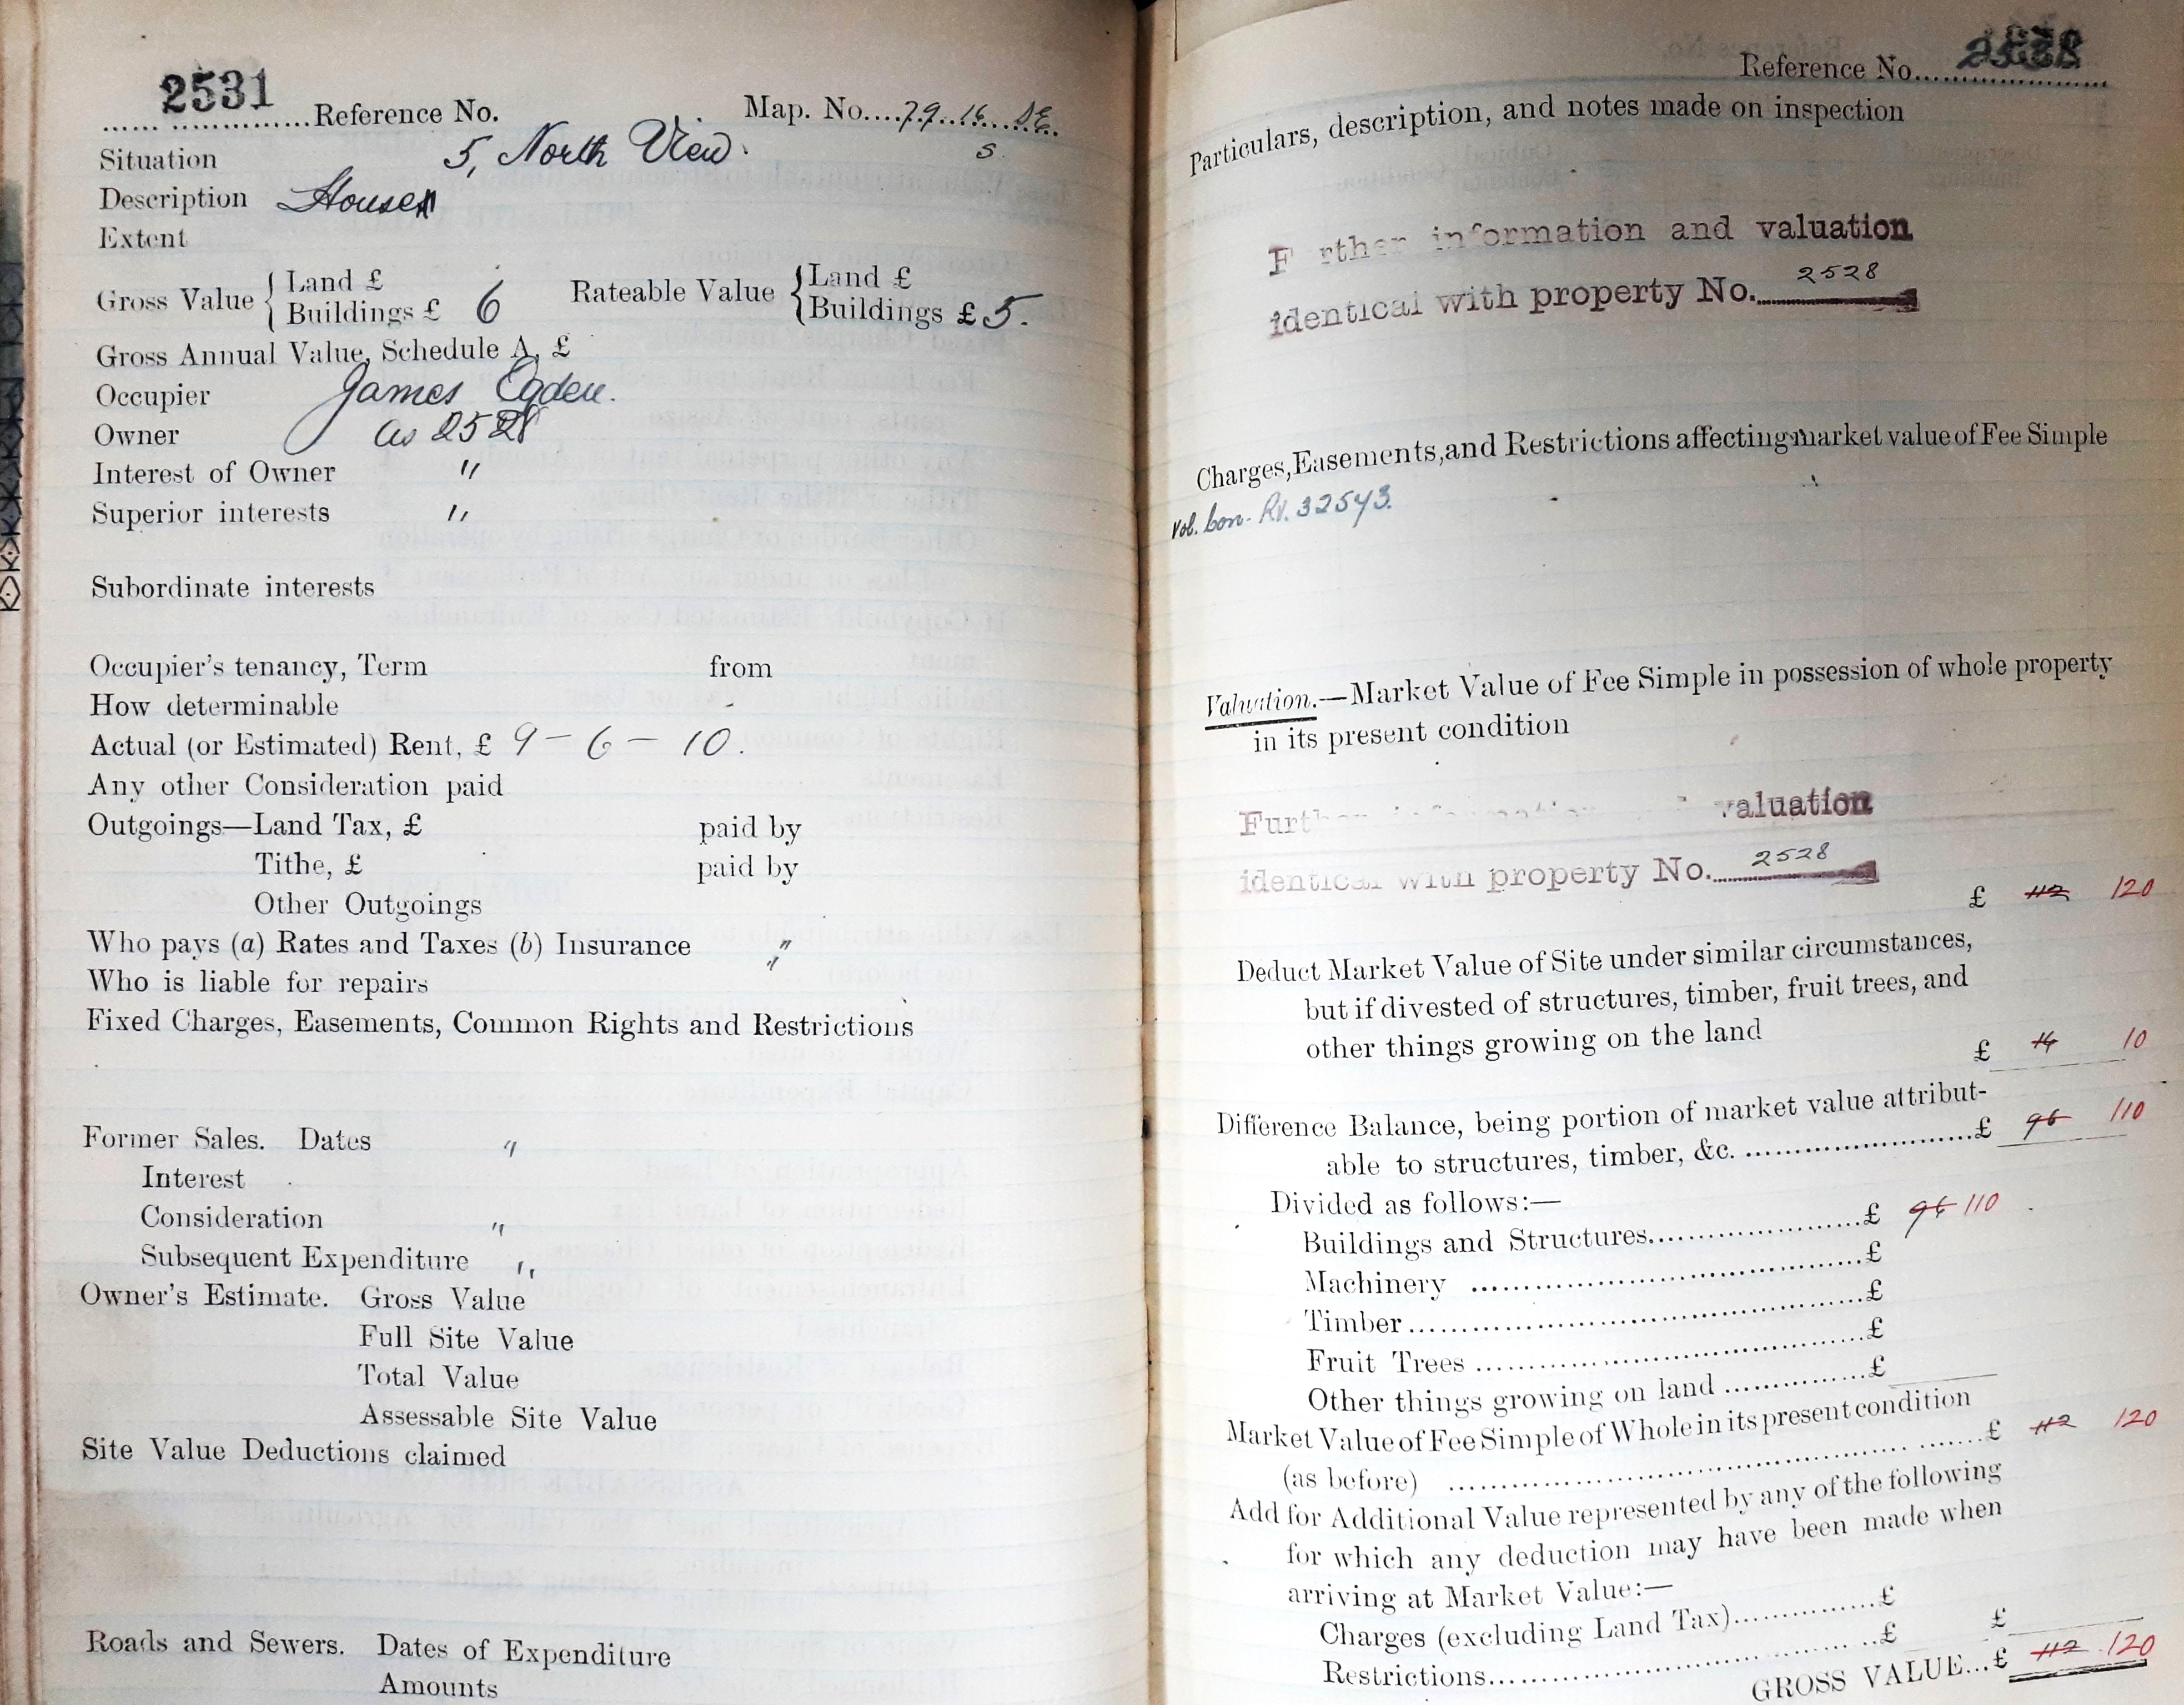 2531 Reference No. Map. No. 79. 16. SE.
Situation 5, North View. S.
Description House
Extent
Gross Value { Land £ Rateable Value { Land £
Buildings £ 6 Buildings £ 5.
Gross Annual Value, Schedule A, £
Occupier James Ogden.
Owner as 2528
Interest of Owner "
Superior interests "
Subordinate interests
Occupier's tenancy, Term from
How determinable
Actual (or Estimated) Rent, £ 9 - 6 - 10.
Any other Consideration paid
Outgoings—Land Tax, £ paid by
Tithe, £ paid by
Other Outgoings
Who pays (a) Rates and Taxes (b) Insurance "
Who is liable for repairs "
Fixed Charges, Easements, Common Rights and Restrictions
Former Sales. Dates "
Interest
Consideration "
Subsequent Expenditure "
Owner's Estimate. Gross Value
Full Site Value
Total Value
Assessable Site Value
Site Value Deductions claimed
Roads and Sewers. Dates of Expenditure
Amounts
Reference No.
Particulars, description, and notes made on inspection
F rther information and valuation
identical with property No. 2528
Charges, Easements, and Restrictions affecting market value of Fee Simple
Vol. Con. RV. 32543.
Valuation.—Market Value of Fee Simple in possession of whole property
in its present condition
Further information valuation
identical with property No. 2528
£ 112 120
Deduct Market Value of Site under similar circumstances,
but if divested of structures, timber, fruit trees, and
other things growing on the land
£ 16 10
Difference Balance, being portion of market value attribut-
able to structures, timber, &c. ........................£ 96 110
Divided as follows:—
Buildings and Structures........................£ 96 110
Machinery ........................£
Timber........................£
Fruit Trees ........................£
Other things growing on land ...............£
Market Value of Fee Simple of Whole in its present condition
(as before) ........................£ 112 120
Add for Additional Value represented by any of the following
for which any deduction may have been made when
arriving at Market Value:—
Charges (excluding Land Tax)...............£
Restrictions........................£ £
GROSS VALUE...£ 112 120